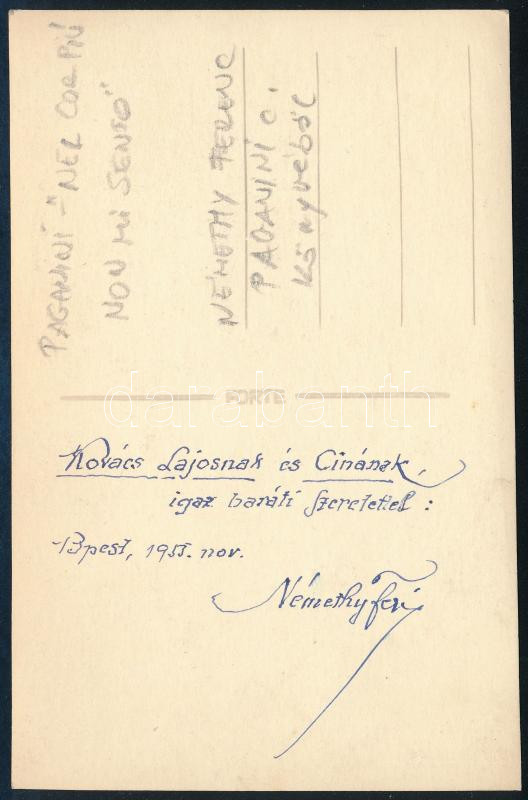 PAGANINI - "NEL COR PIÚ
NON MI SENTO"
NÉMETHY FERENC
PAGANINI C.
KÖNYVÉBŐL
FORTE
darabanth
Kovács Lajosnak és Cinának,
igaz baráti szeretettel:
Bpest, 1955. nov.
Némethy Feri